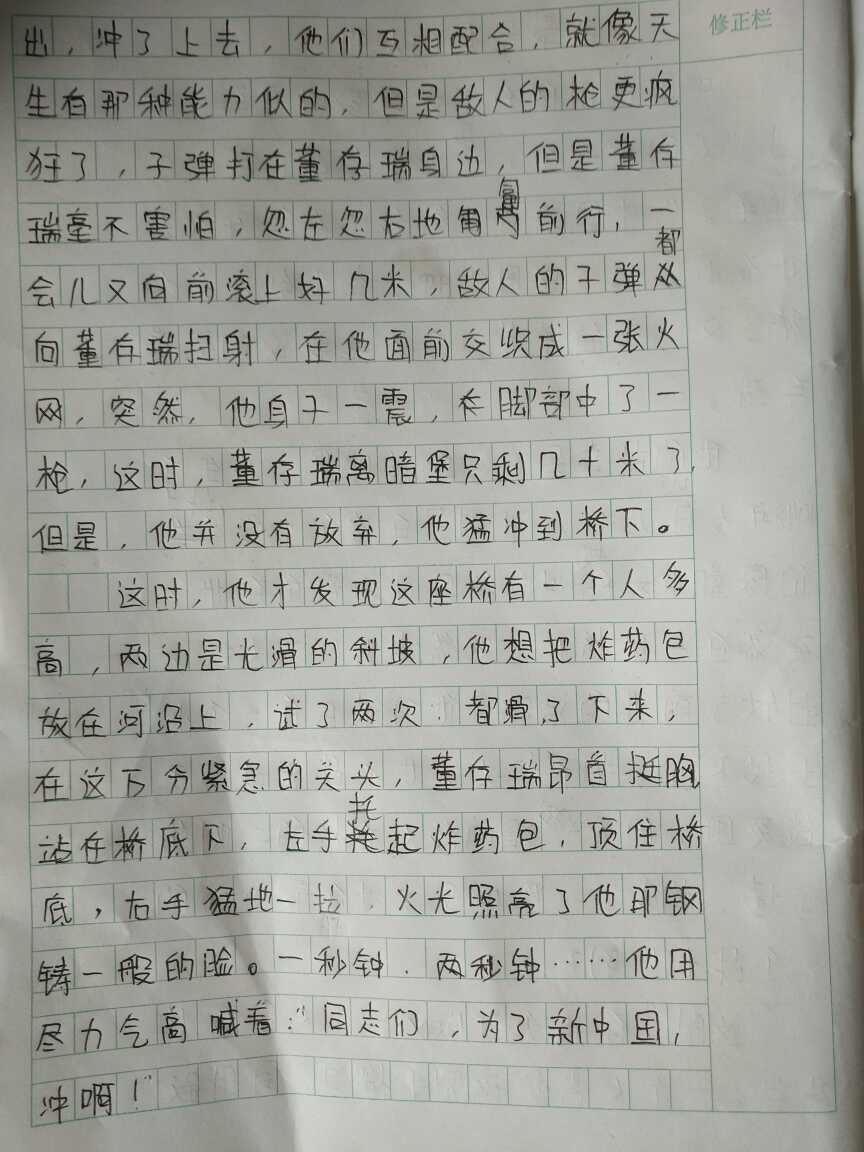 修正栏
出，冲了上去，他们互相配合，就像天
生有那种能力似的，但是敌人的枪更疯
狂了，子弹打在董存瑞身边，但是董存
瑞毫不害怕，忽左忽右地匍匐前行，一
会儿又向前滚上好几米，敌人的子弹都
向董存瑞扫射，在他面前交织成一张火
网，突然，他身子一震，左脚部中了一
枪，这时，董存瑞离暗堡只剩几十米了，
但是，他并没有放弃，他猛冲到桥下。
这时，他才发现这座桥有一个人多
高，两边是光滑的斜坡，他想把炸药包
放在河沿上，试了两次，都滑了下来，
在这万分紧急的关头，董存瑞昂首挺胸
站在桥底下，左手托起炸药包，顶住桥
底，右手猛地一拉，火光照亮了他那钢
铸一般的脸。一秒钟，两秒钟……他用
尽力气高喊着：“同志们，为了新中国，
冲啊！”